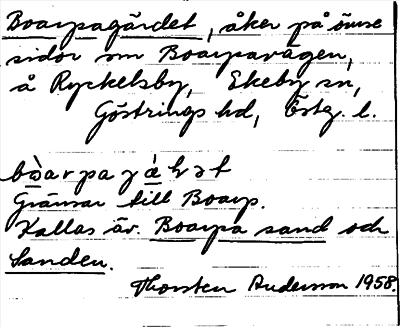 Boarpagärdet, åker på ömse
sidor om Boarpavägen,
å Ryckelsby, Ekeby sn,
Göstrings hd, Östg. l.
Gränsar till Boarp.
Kallas äv. Boarpa sand och
Sanden.
Thorsten Andersson 1958.